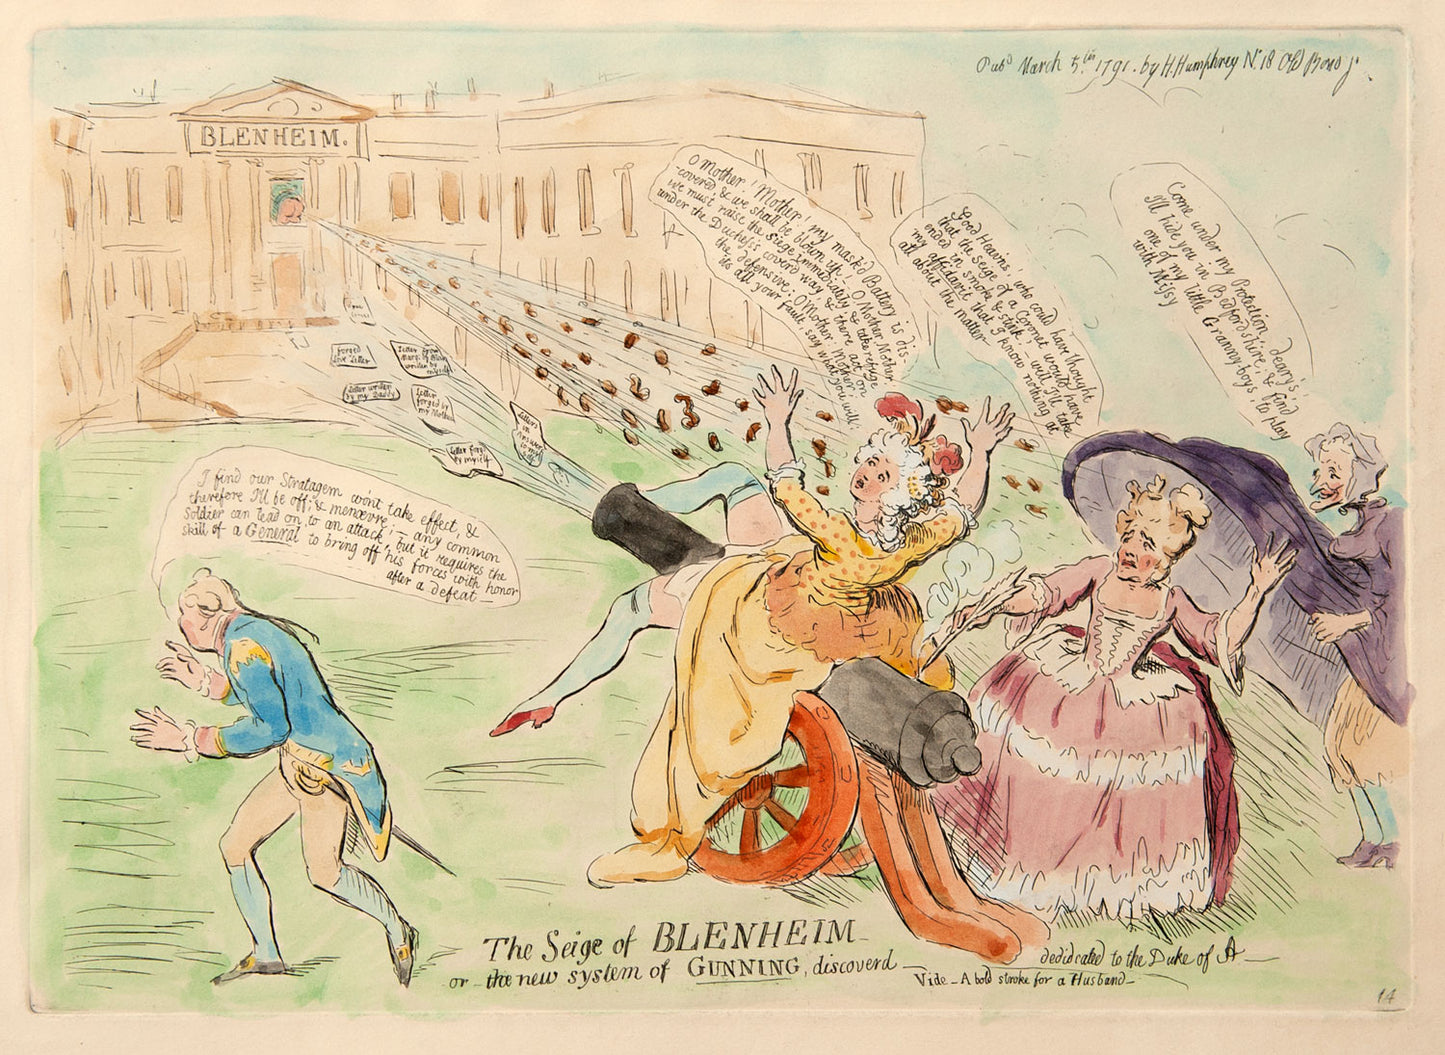 Pubd March 5th 1791. by H. Humphrey No 18 Old Bond
BLENHEIM.
O Mother! Mother! my mask'd Battery is dis-
-covered, & we shall be blown up! O Mother, Mother
we must raise the siege immediately & take refuge
under the Duchess's coverd way, & there act on
the defensive: O Mother, Mother
'tis all your fault, say what you will:
Good Heav'ns! who could have thought
that the seige of a Coronet would have
ended in smoke & stink! - well I'll take
my affidavit that I know nothing at
all about the matter
Come under my Protection, deary's!
I'll hide you in Bedfordshire; & find
one of my little Granny-boys, to play
with Missy
forged
Love Letter
Letter from
Marq: of
written by
myself
Letter written
by my Daddy
Letter
forged by
my Mother
Letters
in
Answer
to my
self
Letter forg'd
by myself
I find our Stratagem wont take effect, &
therefore I'll be off; & menœvre; - any common
Soldier can lead on, to an attack, but it requires the
skill of a General to bring off his forces with honor
after a defeat -
The Seige of BLENHEIM -
or - the new system of GUNNING, discoverd -
dedidcated to the Duke of A -
Vide - A bold stroke for a Husband -
14